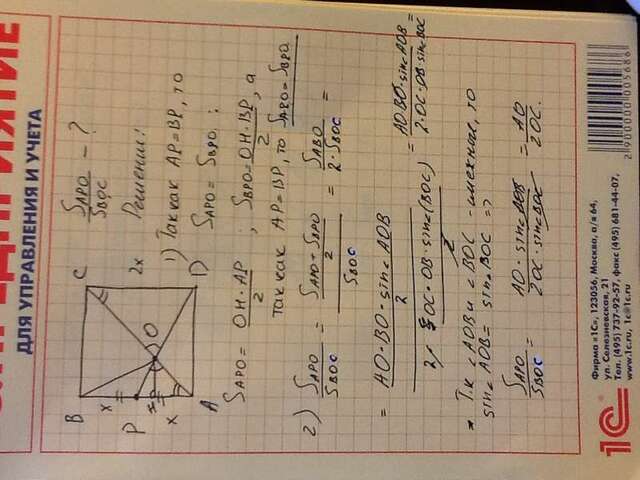 ПРИЯТИЕ
ДЛЯ УПРАВЛЕНИЯ И УЧЕТА
B
C
x
P
x
A
D
O
2x
S_APO / S_BOC - ?
Решение:
1) Так как AP=BP, то
S_APO = S_BPO:
S_APO = OH·AP / 2; S_BPO = OH·BP / 2, а
так как AP=BP, то S_APO = S_BPO
2) S_APO / S_BOC = (S_APO + S_BPO) / 2 / S_BOC = S_ABO / 2·S_BOC =
= AO·BO·sin∠AOB / 2 / 2·OC·OB·sin∠(BOC) / 2 = AO·BO·sin∠AOB / 2·OC·OB·sin∠BOC =
* Т.к ∠AOB и ∠BOC - смежная, то
sin∠AOB = sin∠BOC =>
S_APO / S_BOC = AO·sin∠AOB / 2OC·sin∠BOC = AO / 2OC.
1С
Фирма «1С», 123056, Москва, а/я 64,
ул. Селезневская, 21
Тел. (495) 737-92-57, факс (495) 681-44-07,
www.1c.ru, 1c@1c.ru
2900000005686